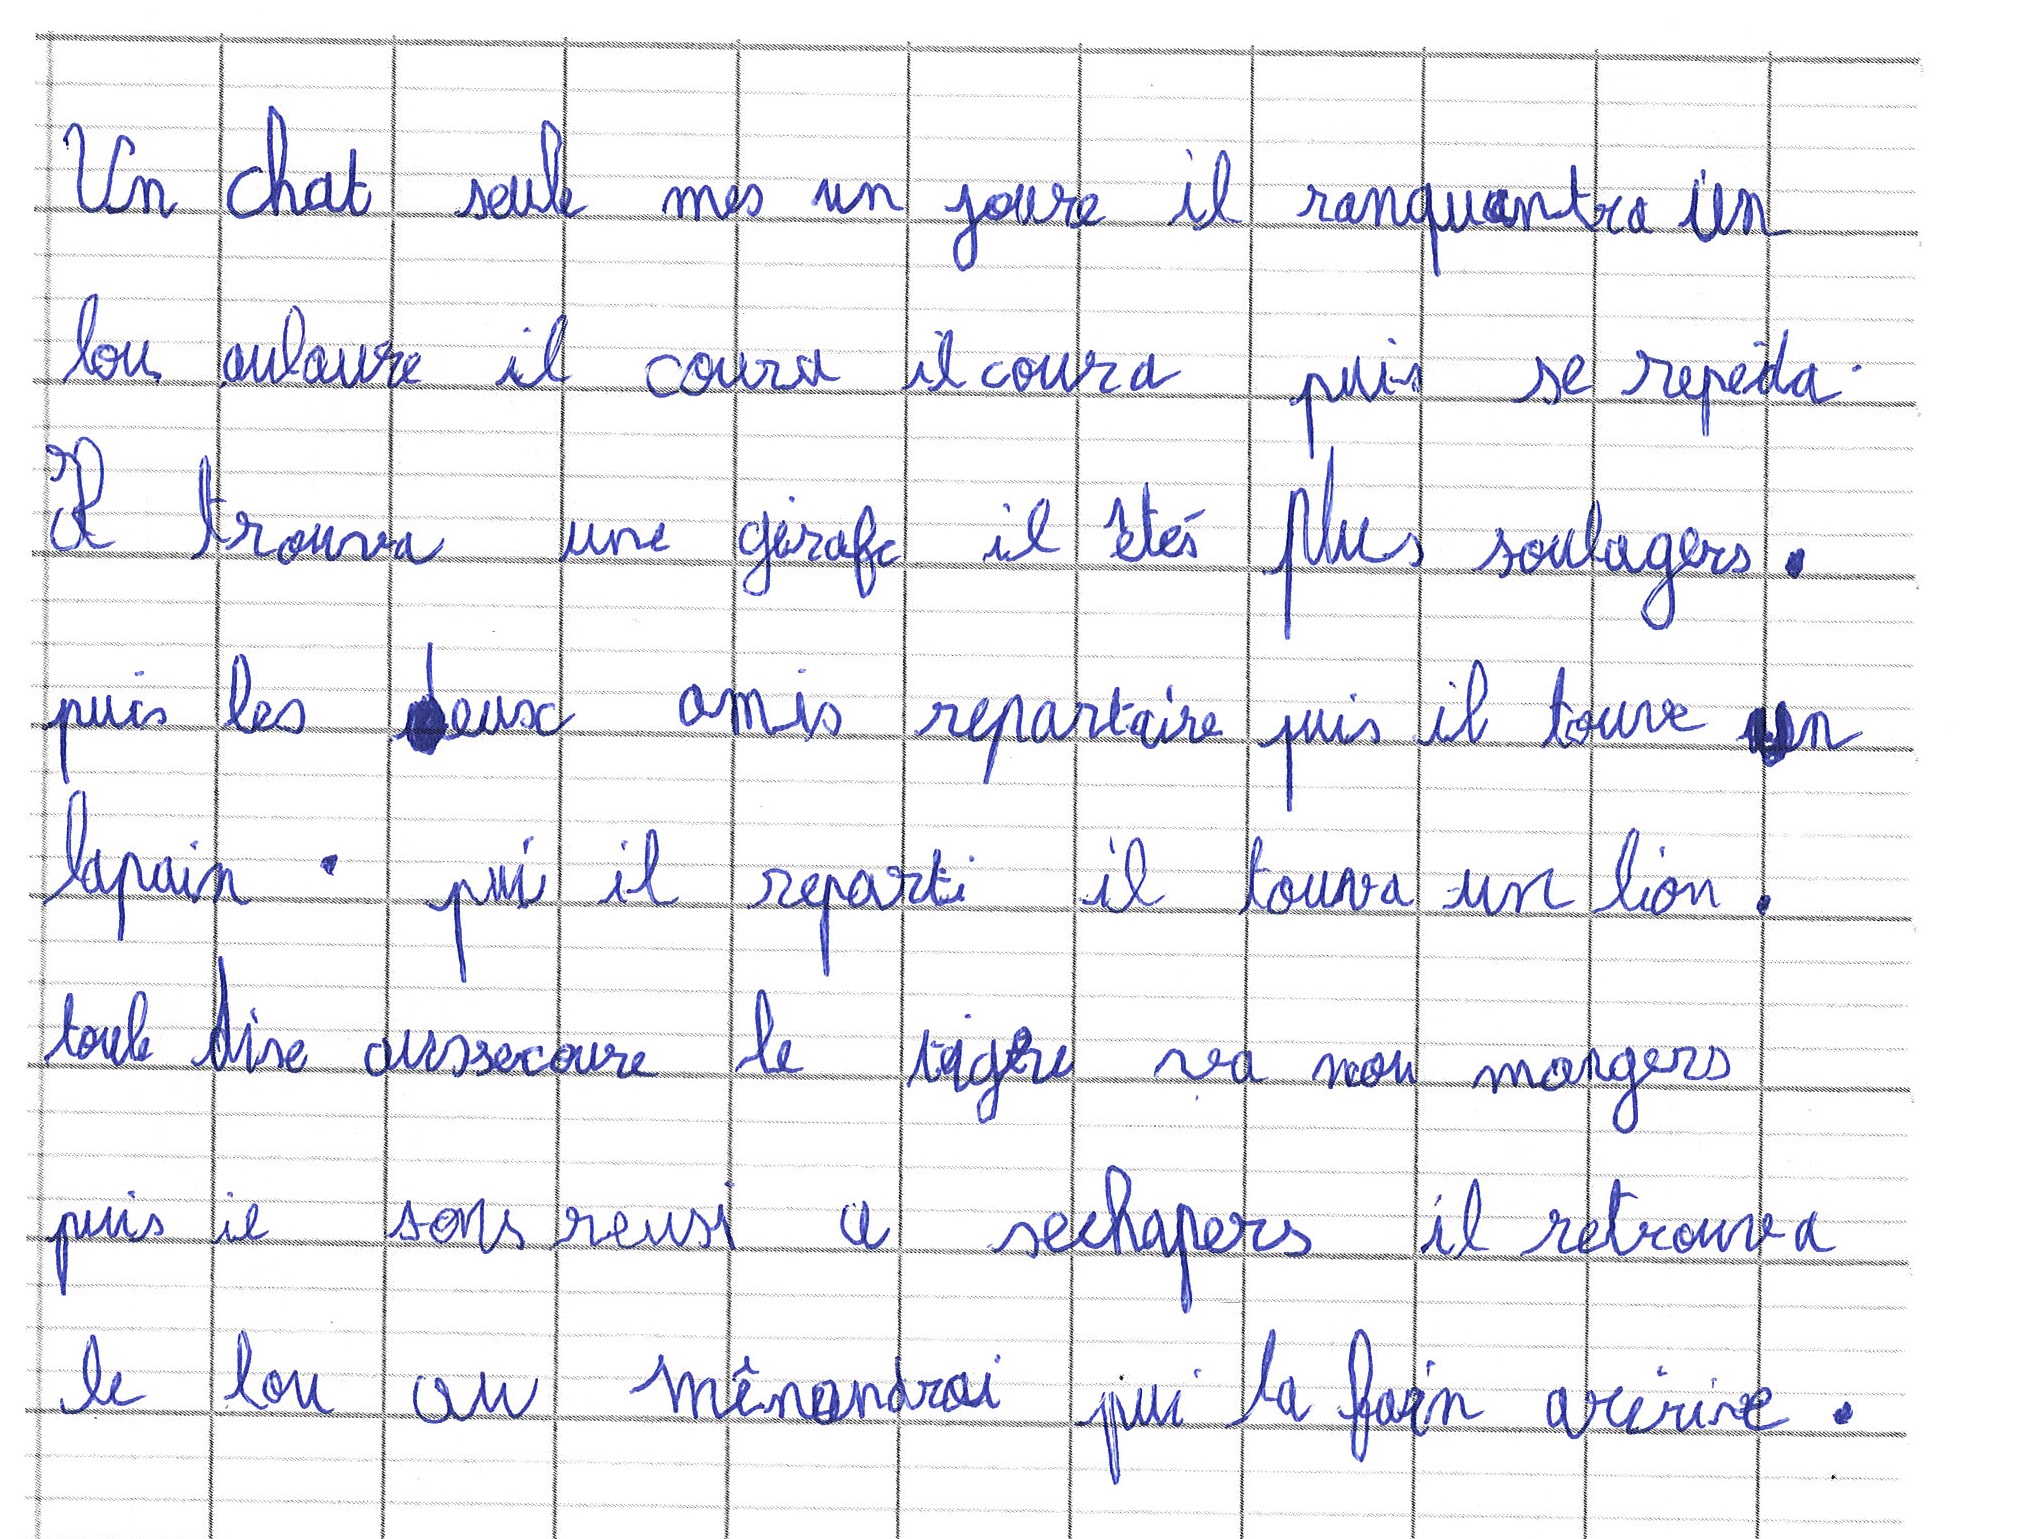 Un chat seule mes un joure il ranquantra un
lou aulaure il coura il coura puis se repéda.
Il trouva une girafe il êtés plus soulagers.
puis les deux amis repartaire puis il touve un
lapain. pui il reparti il touva un lion.
toule dise aussecoure le tigre va nou mangers
puis il sons reusi a sechapers il retrouva
le lou au mênandroi pui la fain arérive.